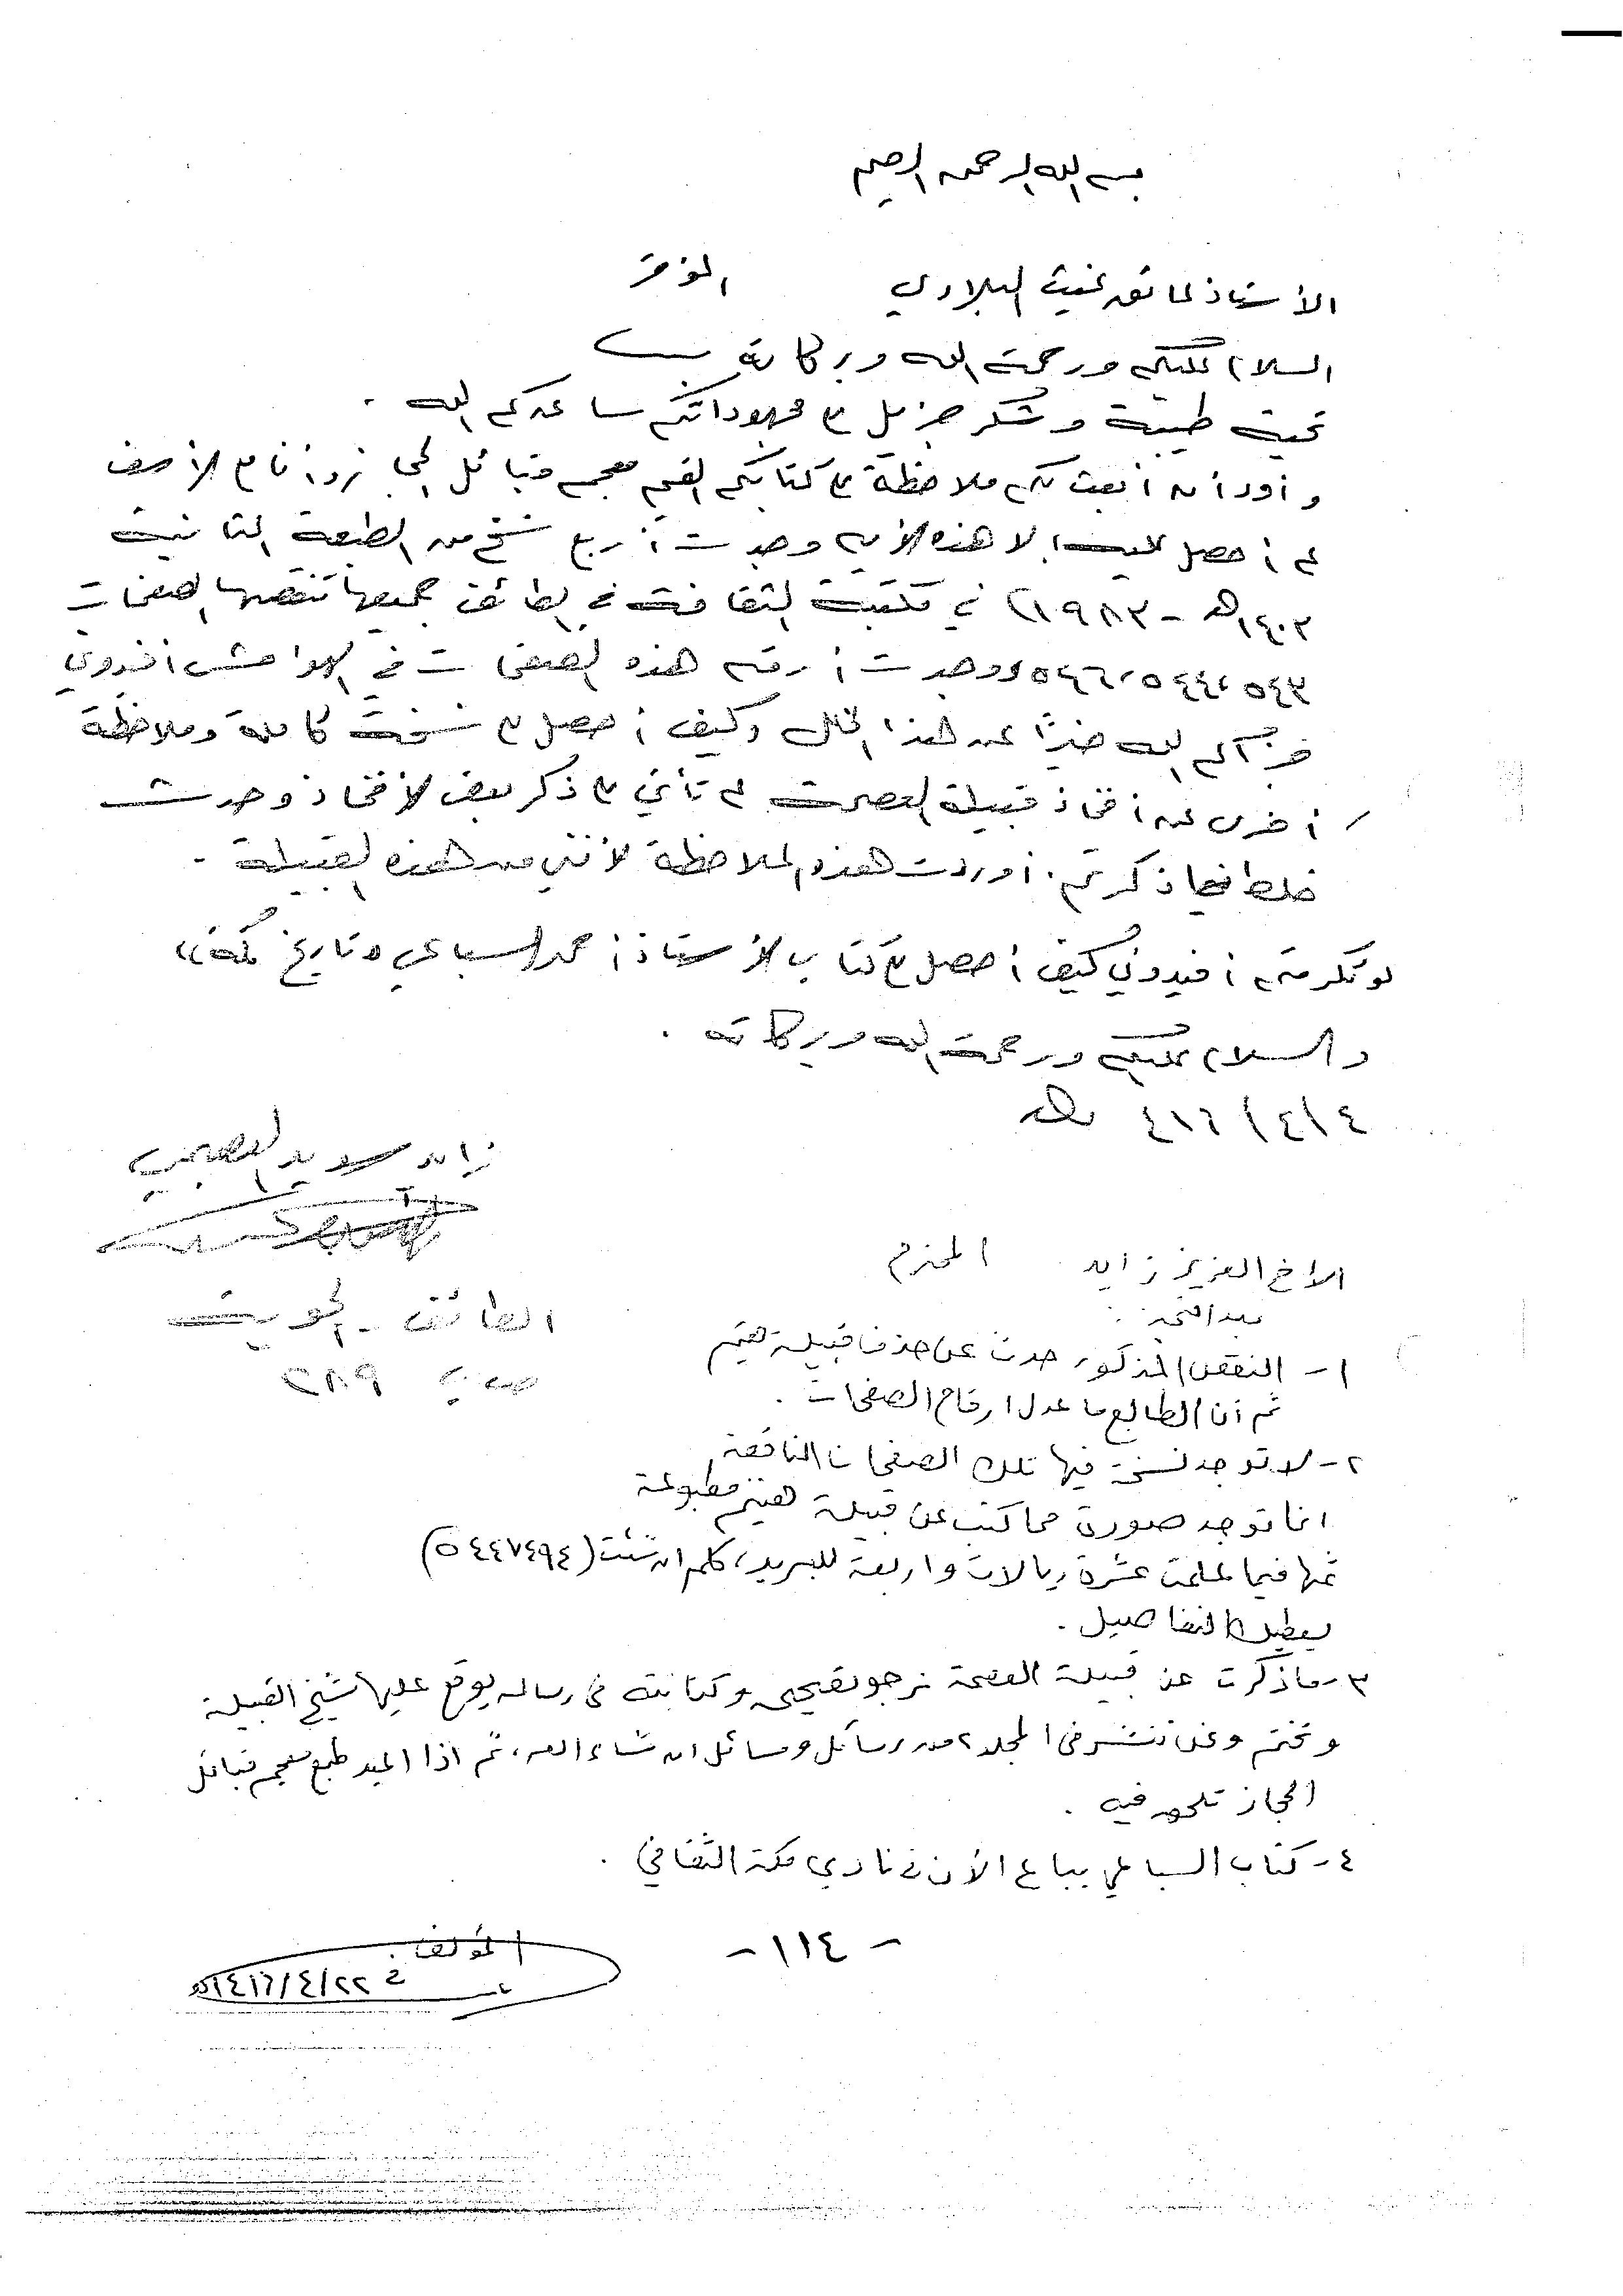 بسم الله الرحمن الرحيم
الأستاذ عاتق غيث البلادي الموقر
السلام عليكم ورحمة الله وبركاته
تحية طيبة وشكر جزيل على مجهوداتكم ساعدكم الله .
وأود أن أبعث لكم ملاحظة على كتابكم القيم معجم قبائل الحجاز وأنا مع الأسف
لم أحصل عليه إلا هذه الأيام وجدت أربع نسخ من الطبعة الثانية
١٤٠٣هـ - ١٩٨٣) في مكتبة الثقافة في الطائف جميعها تنقصها صفحات
٥٤٣، ٥٤٤، ٥٤٦ ووجدت أرقم هذه الصفحات في الهوامش أفيدوني
جزآكم الله خيرًا عن هذا الخلل وكيف أحصل على نسخة كاملة وملاحظة
أخرى عن أفخاذ قبيلة العصمة لم تأتي على ذكر بعض الأفخاذ وحدث
خلط فيما ذكرتم. أوردت هذه الملاحظة لأنني من هذه القبيلة .
لو تكرمتم أفيدوني كيف أحصل على كتاب الأستاذ أحمد السباعي «تاريخ مكة»
والسلام عليكم ورحمة الله وبركاته .
٤/٤/٤١٦ هـ
زايد العصيمي
الطائف - الحوية
ص.ب ٢٨٩
الاخ العزيز زايد المحترم
بعد التحية :
١- النقص المذكور حدث عن حذف قبيلة هتيم
ثم أن الطابع ما عدل ارقام الصفحات .
٢- لا توجد نسخة فيها تلك الصفحات الناقصة
انما توجد صورة مما كتب عن قبيلة هتيم مطبوعة
ثمنها فيما علمت عشرة ريالات واربعة للبريد، كلم ان شئت (٥٤٤٧٤٩٤)
يعطيك التفاصيل .
٣- ما ذكرت عن قبيلة العصمة نرجو تصحيحه وكتابته في رسالة يوقع عليها شيخ القبيلة
وتختم ونحن ننشر في المجلد ٢ من رسائل ومسائل ان شاء الله، ثم اذا اعيد طبع معجم قبائل
الحجاز تلحق فيه .
٤- كتاب السباعي يباع الأن في نادي مكة الثقافي .
المؤلف .
١٤١٦/٤/٢٢هـ
- ١١٤ -